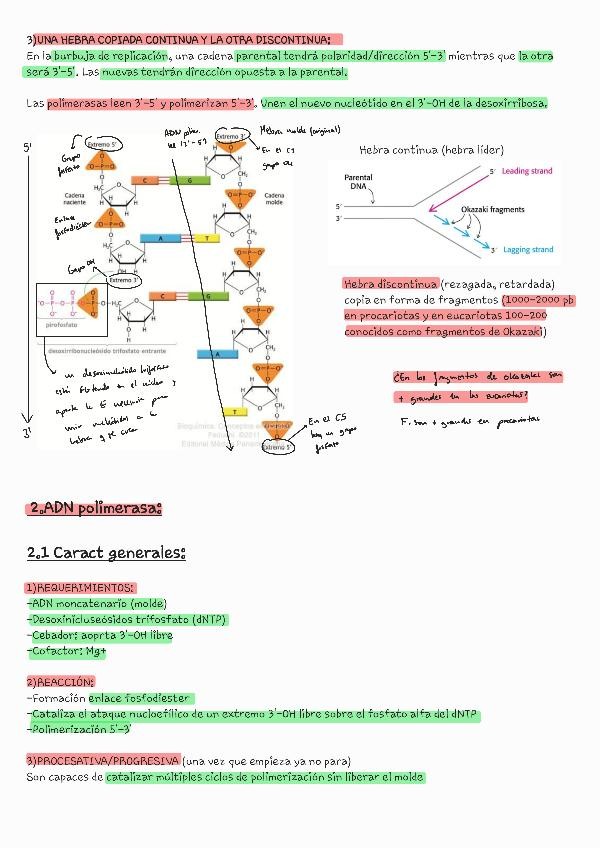 3)UNA HEBRA COPIADA CONTINUA Y LA OTRA DISCONTINUA:
En la burbuja de replicación, una cadena parental tendrá polaridad/dirección 5'-3' mientras que la otra
será 3'-5'. Las nuevas tendrán dirección opuesta a la parental.
Las polimerasas leen 3'-5' y polimerizan 5'-3'. Unen el nuevo nucleótido en el 3'-OH de la desoxirribosa.
5'
Extremo 5'
Grupo
fosfato
ADN polim.
lee (3'-5')
Extremo 3'
Hebra molde (original)
En el C3
grupo OH
Cadena
naciente
Cadena
molde
C
G
Enlace
fosfodiéster
A
T
Grupo OH
Extremo 3'
pirofosfato
C
G
desoxirribonucleósido trifosfato entrante
A
T
un desoxinucleósido trifosfato
está flotando en el núcleo y
aporta la E necesaria para
unir nucleótidos a la
hebra q se crea
3'
En el C5
hay un grupo
fosfato
Extremo 5'
Editorial Médica Paname
Hebra continua (hebra líder)
Parental
DNA
5'
3'
5'
Leading strand
Okazaki fragments
3'
Lagging strand
Hebra discontinua (rezagada, retardada)
copia en forma de fragmentos (1000-2000 pb
en procariotas y en eucariotas 100-200
conocidos como fragmentos de Okazaki)
¿En los fragmentos de okazaki son
+ grandes en los eucariotas?
F. son + grandes en procariotas
2.ADN polimerasa:
2.1 Caract generales:
1)REQUERIMIENTOS:
-ADN moncatenario (molde)
-Desoxinicluseósidos trifosfato (dNTP)
-Cebador: aoprta 3'-OH libre
-Cofactor: Mg+
2)REACCIÓN:
-Formación enlace fosfodiester
-Cataliza el ataque nucloefílico de un extremo 3'-OH libre sobre el fosfato alfa del dNTP
-Polimerización 5'-3'
3)PROCESATIVA/PROGRESIVA (una vez que empieza ya no para)
Son capaces de catalizar múltiples ciclos de polimerización sin liberar el molde